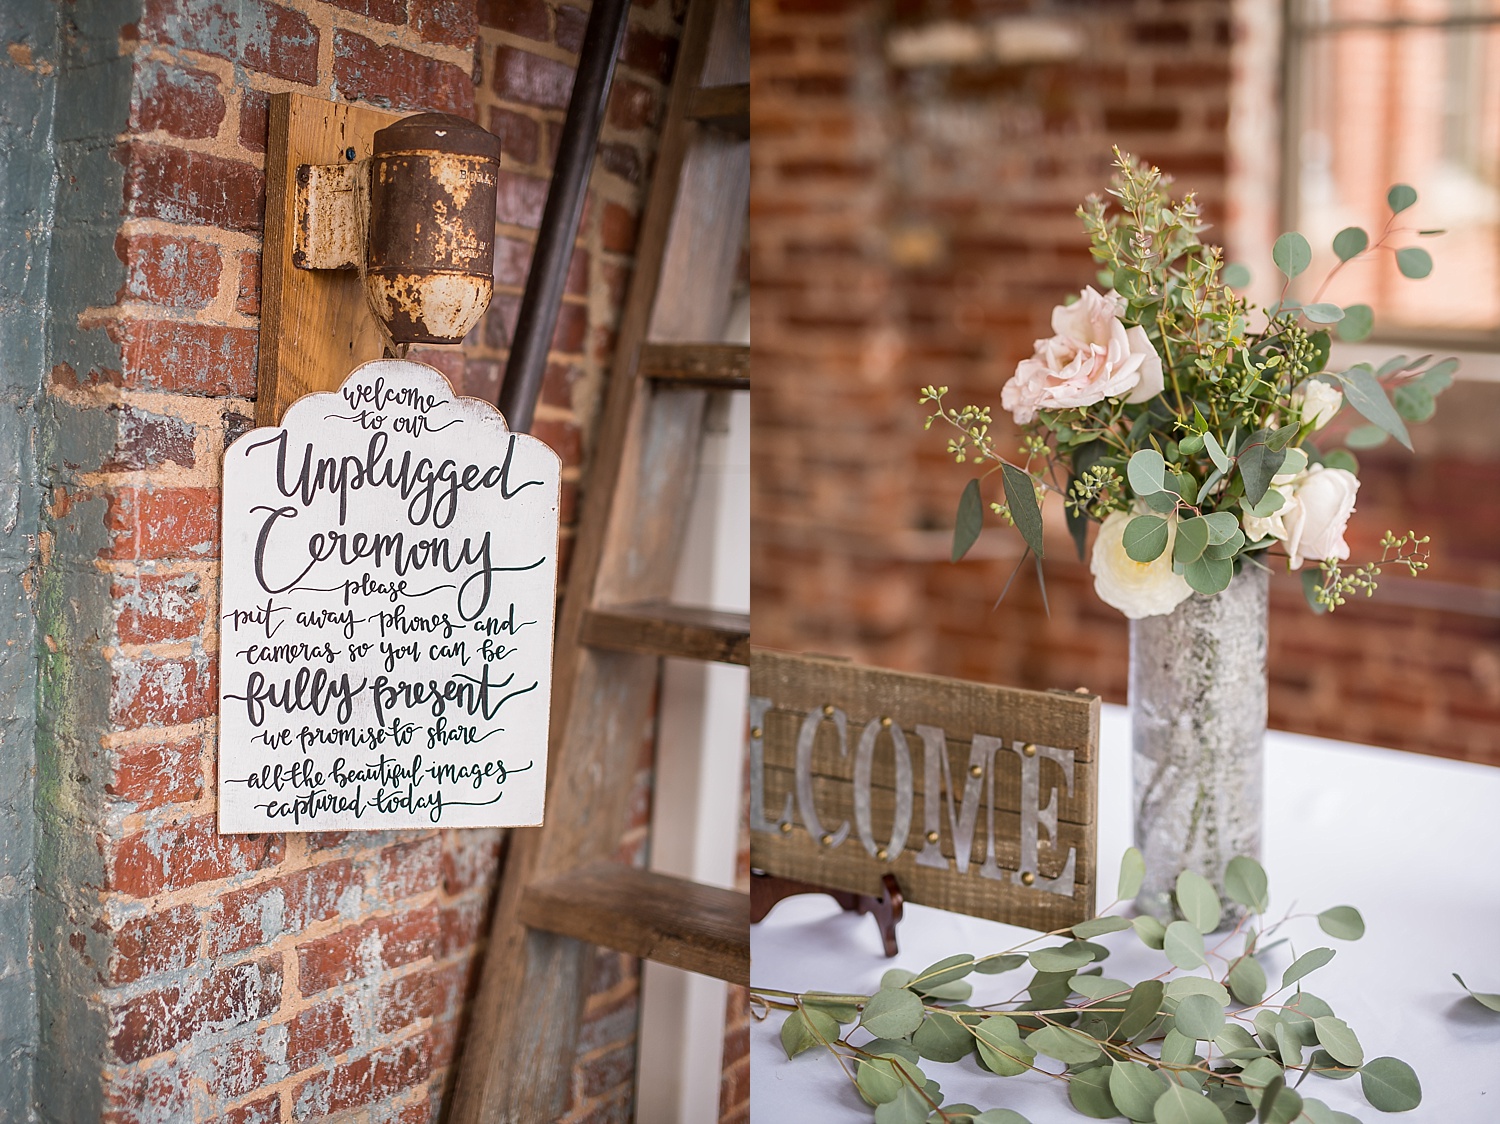 welcome
to our
Unplugged
Ceremony
please
put away phones and
cameras so you can be
fully present
we promise to share
all the beautiful images
captured today
LCOME